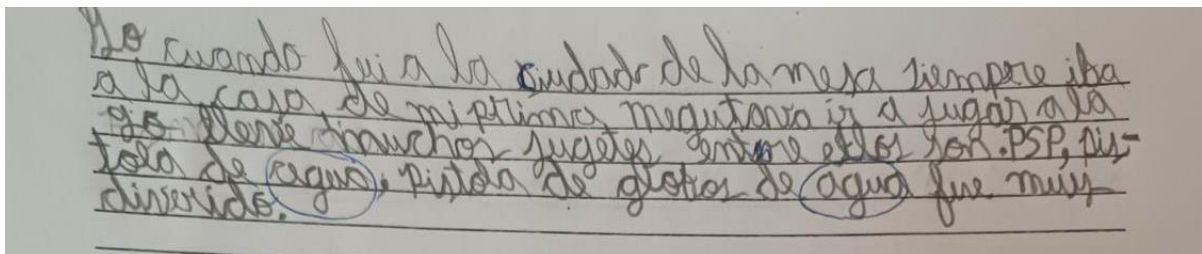 Yo cuando fui a la ciudade de la mesa siempre iba
a la casa de mi primo megutaria ir a jugar a la
el tiene muchos jugetes entre ellos son. PSP, pis-
tola de agua, pistola de globos de agua fue muy
diverido.